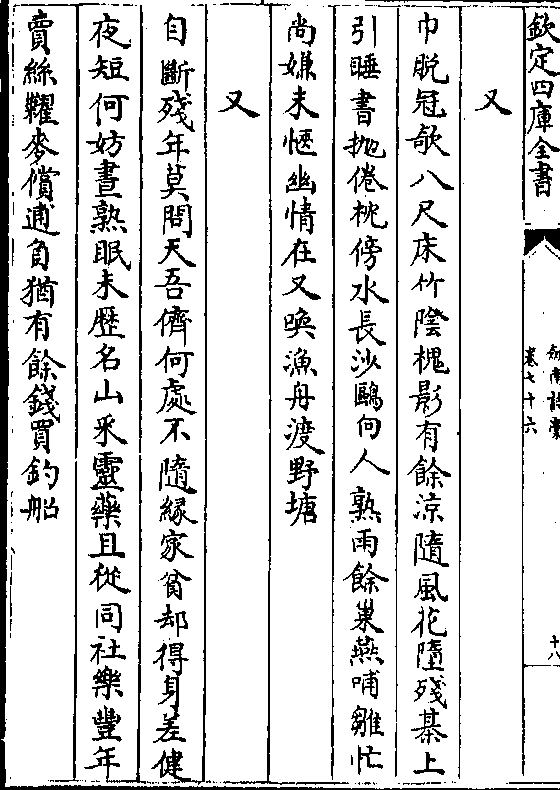 欽定四庫全書
劍南詩藁
卷七十六
十八
又
巾脱冠欹八尺床竹陰槐影有餘涼隨風花墮殘棊上
引睡書抛倦枕傍水長沙鷗向人熟雨餘巢燕哺雛忙
尚嫌未愜幽情在又喚漁舟渡野塘
又
自斷殘年莫問天吾儕何處不隨縁家貧却得身差健
夜短何妨晝熟眠未歴名山采靈藥且從同社樂豐年
賣絲糶麥償逋負猶有餘錢買釣船